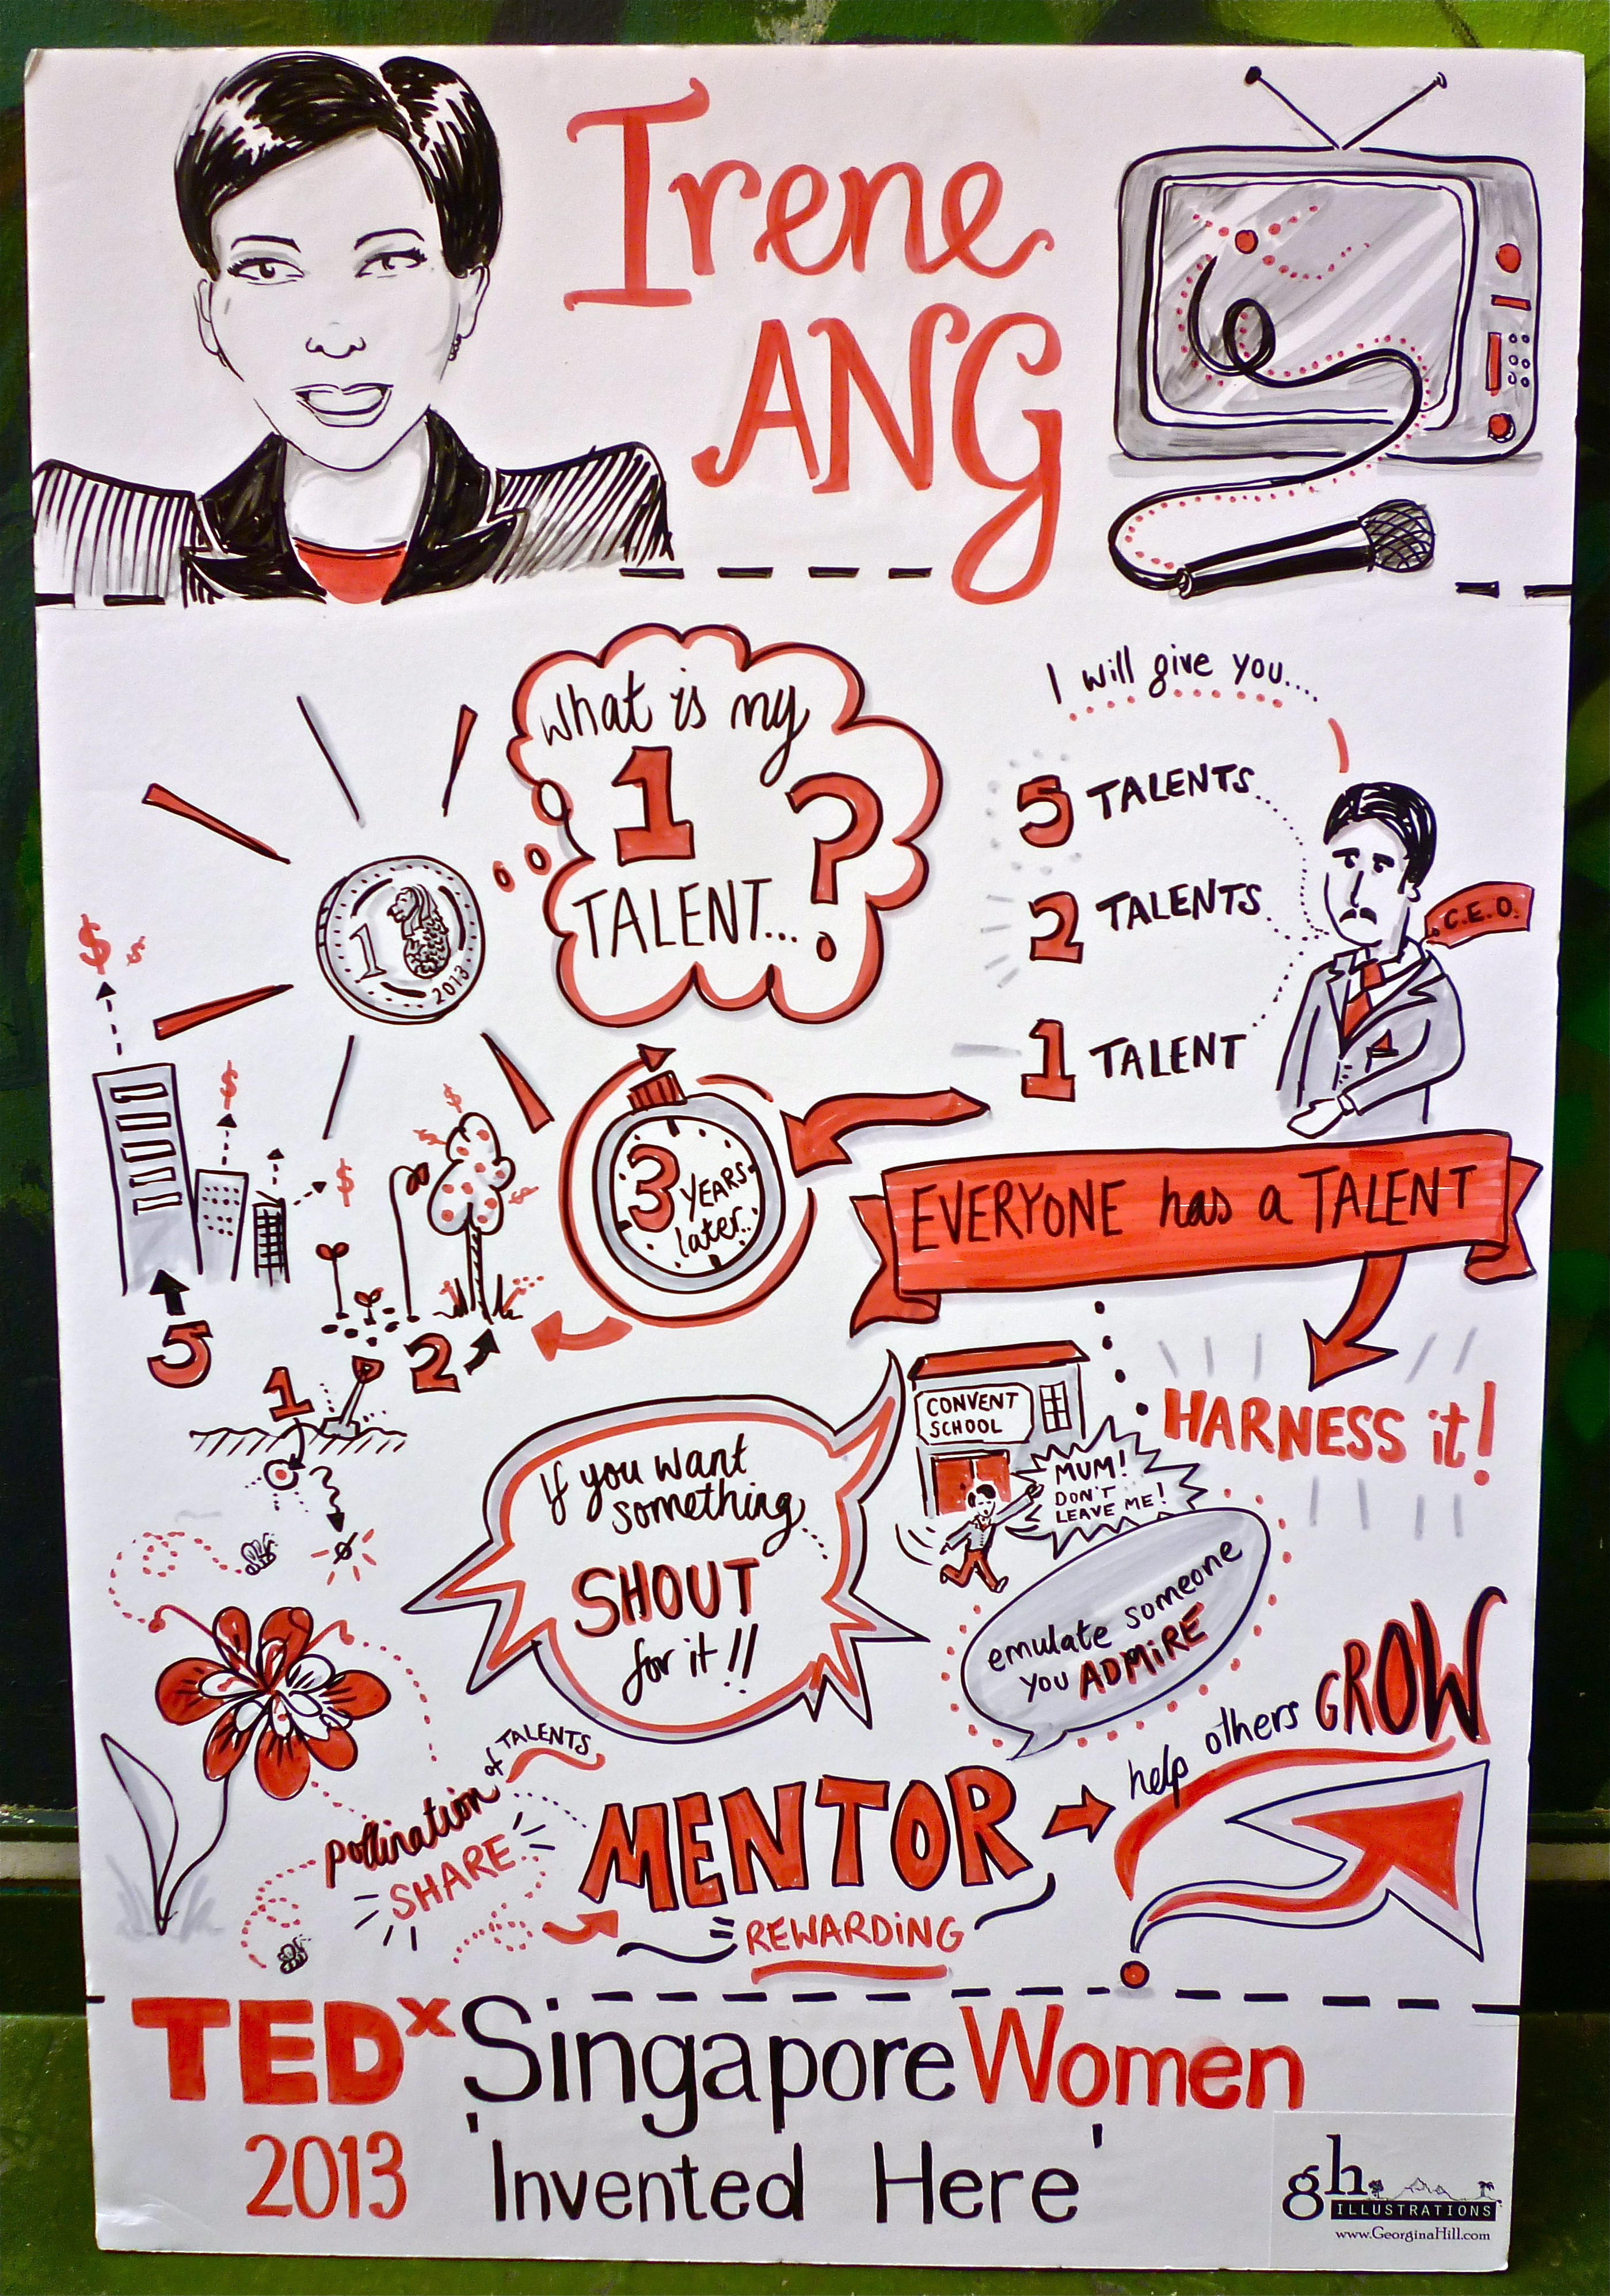 Irene
ANG
What is my
1
TALENT...?
1
2013
I will give you....
5 TALENTS
2 TALENTS
1 TALENT
C.E.O.
$ $
$
$
$
$
$
3
YEARS
later..
EVERYONE has a TALENT
HARNESS it!
5
1
2
CONVENT
SCHOOL
MUM!
DON'T
LEAVE ME!
If you want
something
SHOUT
for it!!
emulate someone
you ADMiRE
pollination of TALENTS
SHARE
MENTOR
REWARDiNG
help others GROW
TEDx SingaporeWomen
2013 'Invented Here'
gh
ILLUSTRATIONS
www.GeorginaHill.com